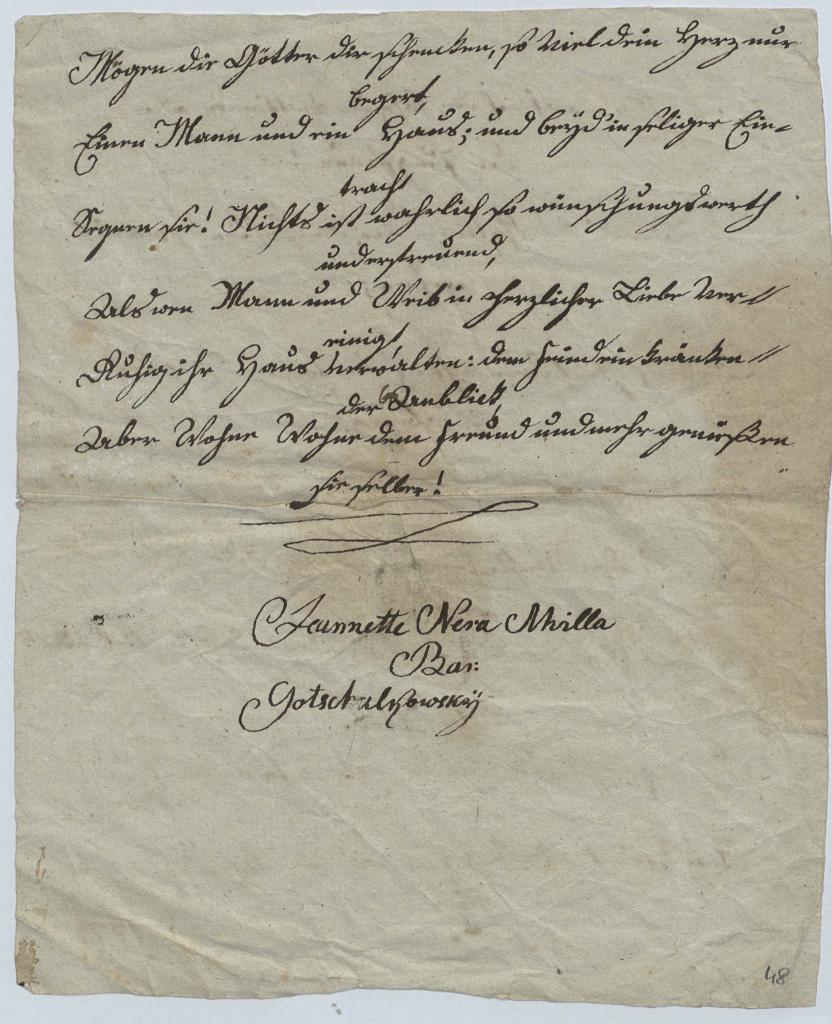 Mögen die Götter dir schencken, so viel dein Herz nur
begert,
Einen Mann und ein Haus; und beyd' in seliger Ein=
tracht
Segnen sie! Nichts ist wahrlich so wünschungswerth
und erstreuend,
Als wen Mann und Weib in herzlicher Liebe ver //
einigt,
Ruhig ihr Haus verwalten: dem Feind ein kränken //
der Anblick,
Aber Wohne Wohne dem Freund und mehr genüßen
sie selber!
Jeannette Nera
Bar:
Gotschalkowsky
48